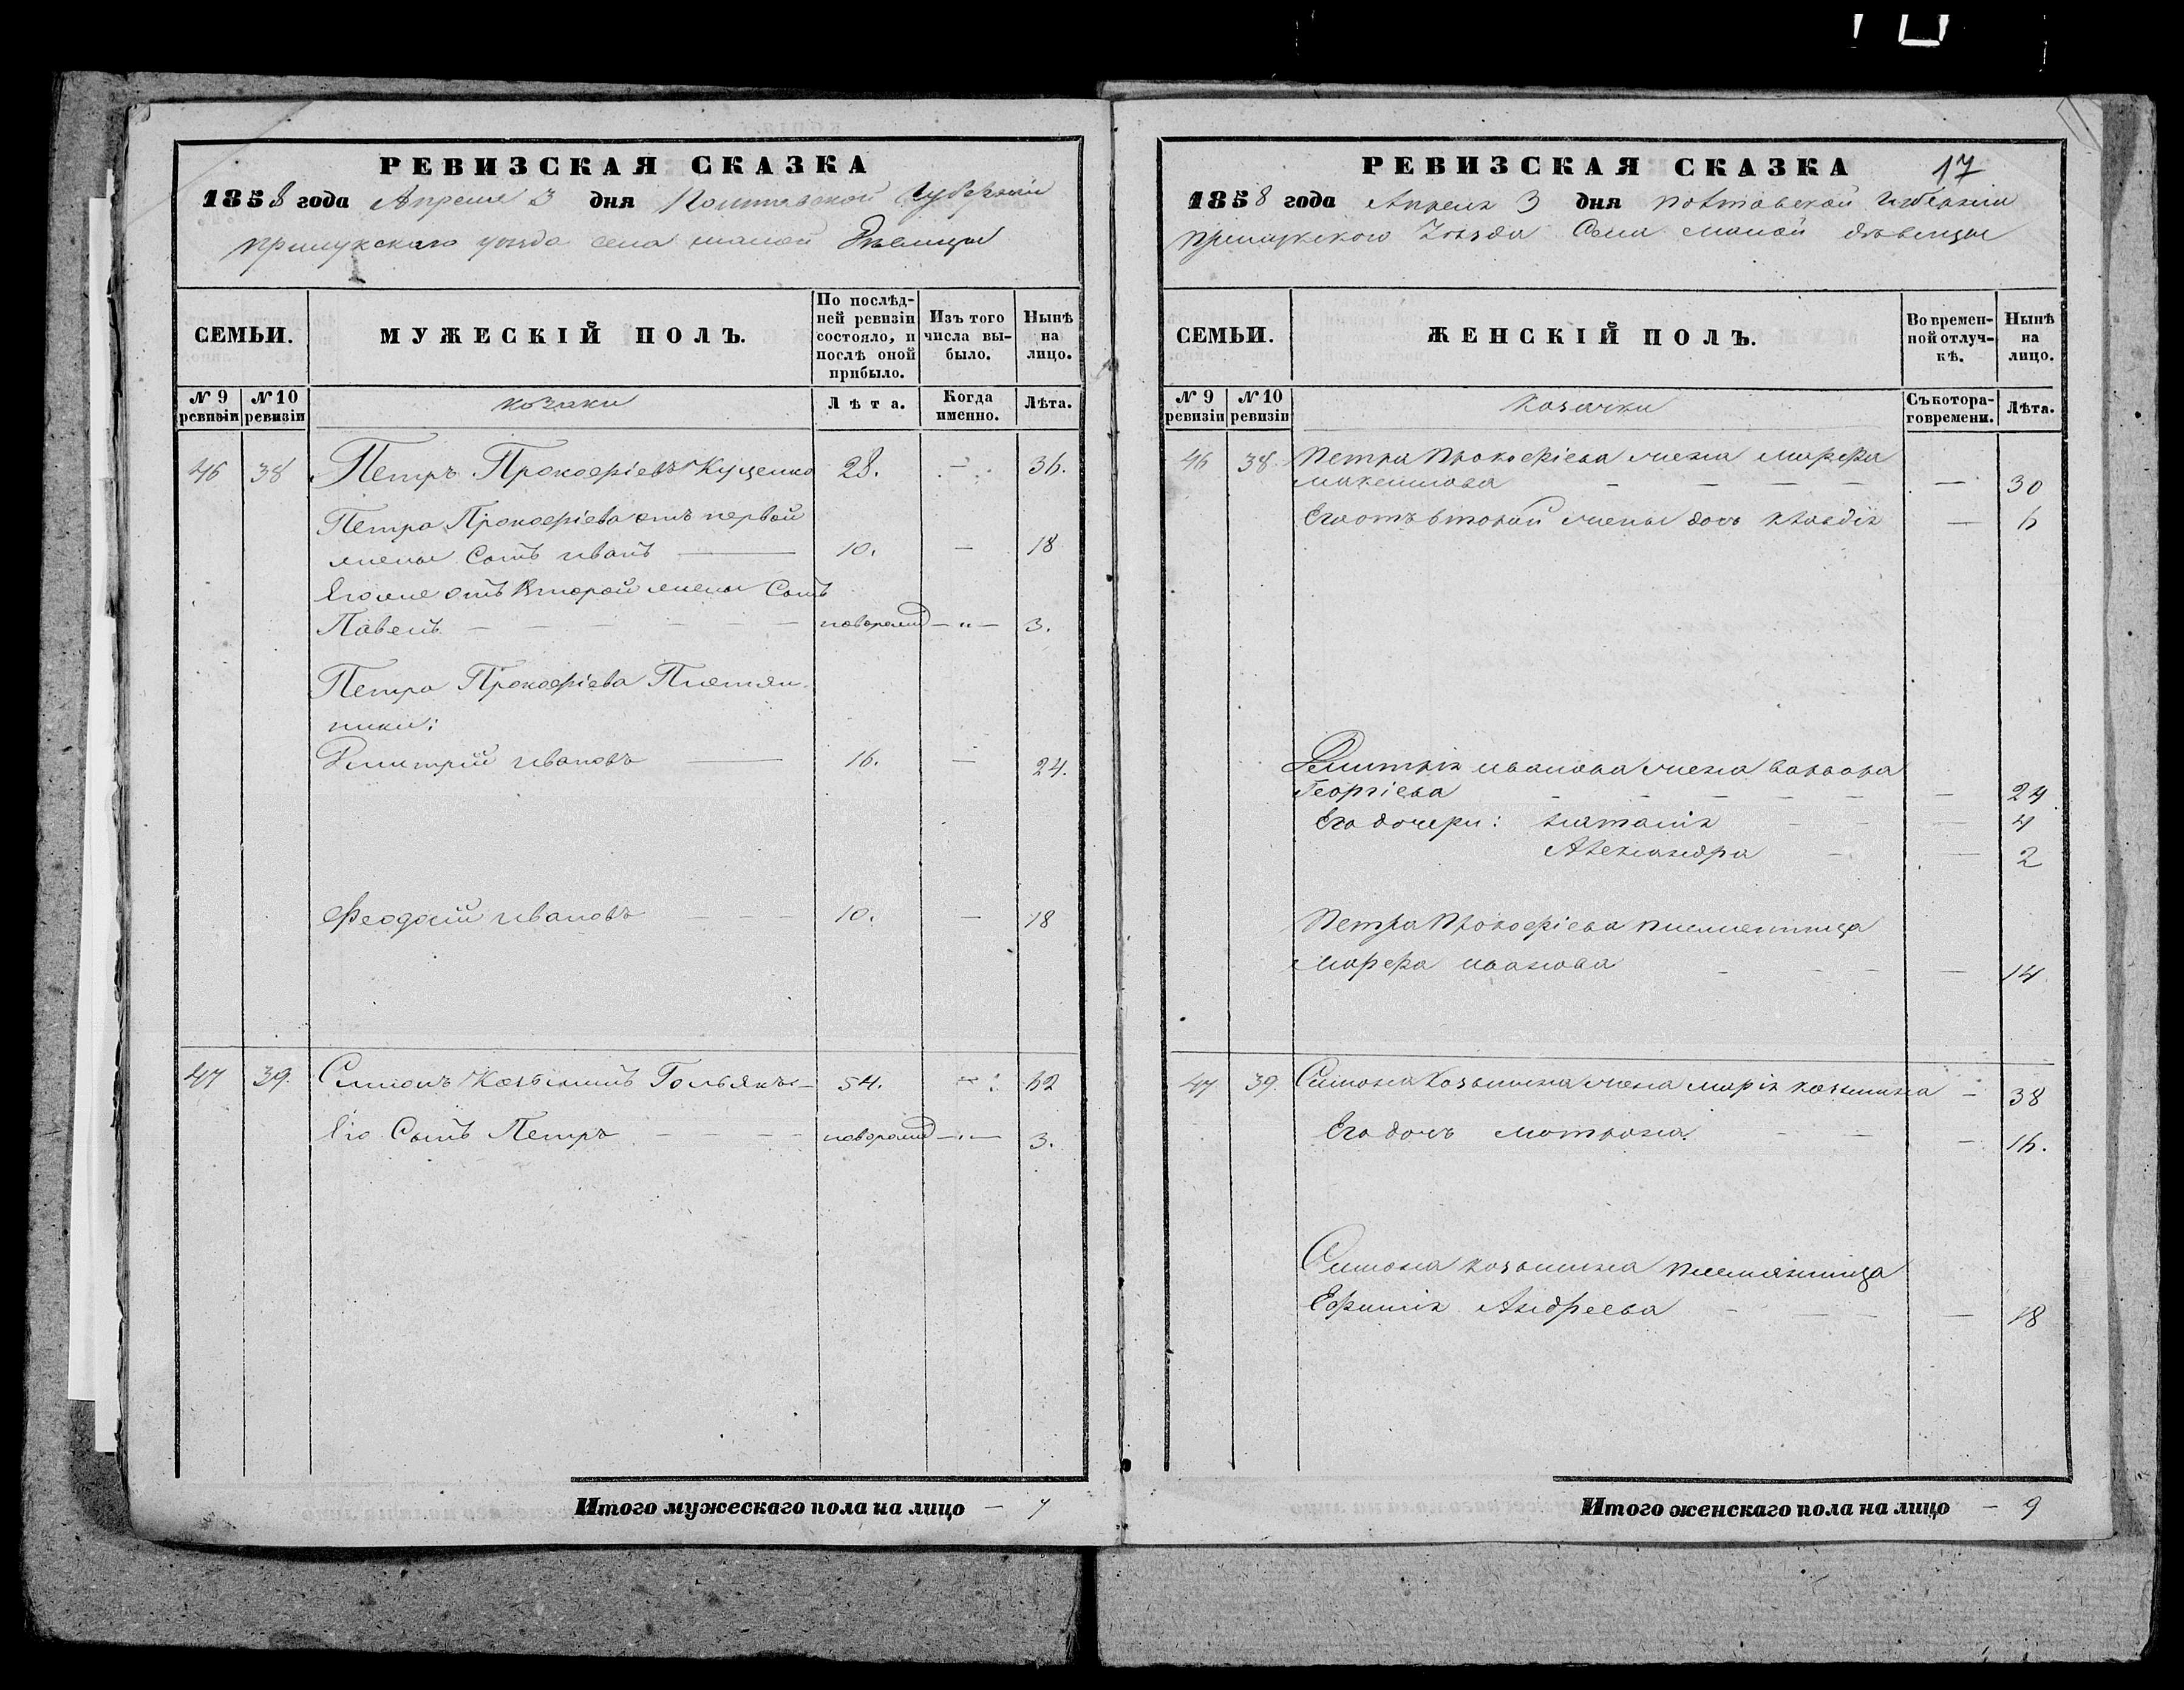 РЕВИЗСКАЯ СКАЗКА
1858 года Апреля 3 дня Полтавской Губерніи
Прилукскаго уезда села малой Девицы
СЕМЬИ. МУЖЕСКІЙ ПОЛЪ. По послѣд-ней ревизіи состояло, и послѣ оной прибыло. Изъ того числа вы-было. Нынѣ на лицо.
№ 9 ревизіи № 10 ревизіи козаки Лѣта. Когда именно. Лѣта.
46 38 Петръ Прокофіевъ Куценко 28. — 36.
Петра Прокофіева отъ первой
жены Сынъ иванъ — 10. — 18
Его же отъ Второй жены Сынъ
Павелъ — — — — — — новорожд — „ — 3.
Петра Прокофіева Племян-
ники:
Димитрій ивановъ — 16. — 24.
Феодосій ивановъ — — 10. — 18
47 39. Симонъ Козьминъ Гольякъ — 54. — 62
Его Сынъ Петръ — — — — новорожд — „ — 3.
Итого мужескаго пола на лицо — 7
РЕВИЗСКАЯ СКАЗКА 17
1858 года Апреля 3 дня Полтавской Губерніи
Прилукского Уѣзда Села Малой дѣвицы
СЕМЬИ. ЖЕНСКІЙ ПОЛЪ. Во времен-ной отлуч-кѣ. Нынѣ на лицо.
№ 9 ревизіи № 10 ревизіи Козачки Съ котора-го времени. Лѣта.
46 38. Петра Прокофіева жена марфа
максимова — — — — — 30
Его отъ второй жены дочь клавдія — 6
Димитрія иванова жена варвара
Георгіева — — — — — — 24.
Его дочери: наталія — — — 4
Александра — — 2
Петра Прокофіева племянница
Марфа иванова — — — — — 14.
47 39. Симона Козьмина жена марія козьмина — 38
Его дочь мотрона — — — 16.
Симона козьмина племянница
Ефимія Андреева — — — — 18
Итого женскаго пола на лицо — 9